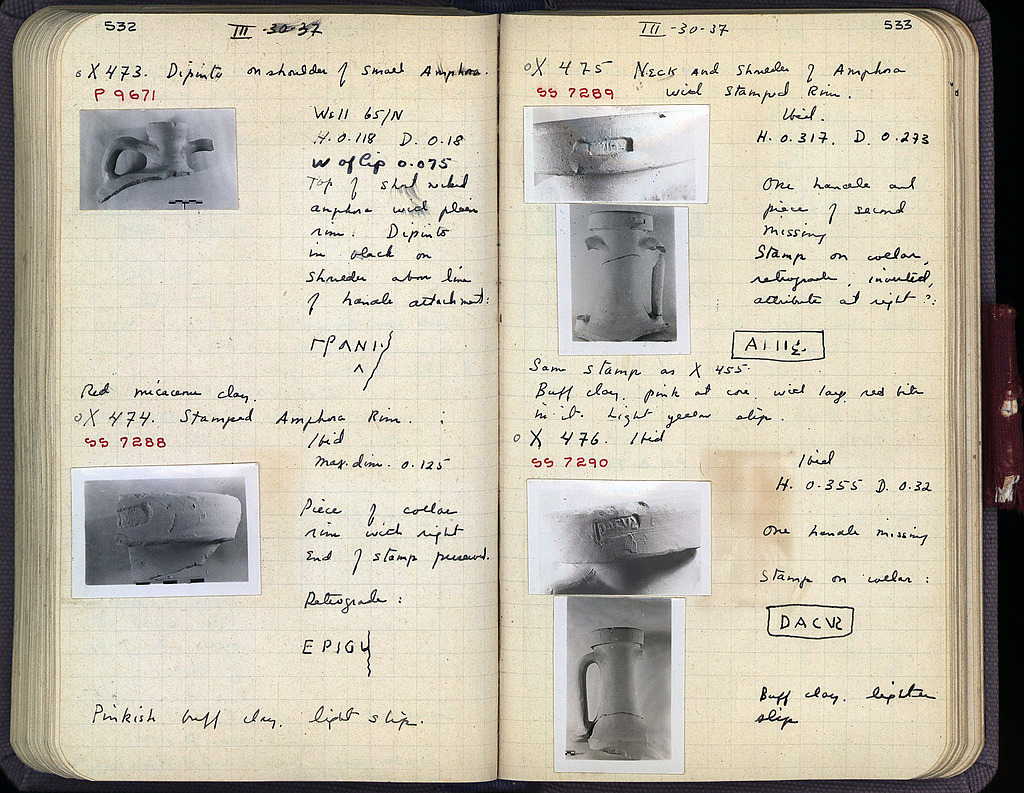 532
III -30-37
X 473. Dipinto on shoulder of small Amphora.
P 9671
Well 65/N
H. 0.118 D. 0.18
W of lip 0.075
Top of short necked
amphora with plain
rim. Dipinto
in black on
shoulder above line
of handle attachment:
ΓΡΑΝΙ
Λ
Red micaceous clay.
X 474. Stamped Amphora Rim.
SS 7288
Ibid
Max. dim. 0.125
Piece of collar
rim with right
End of stamp preserved.
Retrograde:
EPIGV
Pinkish buff clay. light slip.
III -30-37
533
X 475 Neck and Shoulder of Amphora
SS 7289
with Stamped Rim.
Ibid.
H. 0.317. D. 0.273
One handle and
piece of second
missing
Stamp on collar,
retrograde, inverted,
attribute at right ?:
Same stamp as X 455.
Buff clay, pink at core with large red bits
in it. Light yellow slip.
X 476. Ibid
SS 7290
Ibid
H. 0.355 D. 0.32
One handle missing
Stamp on collar:
DACVR
Buff clay. lighter
slip